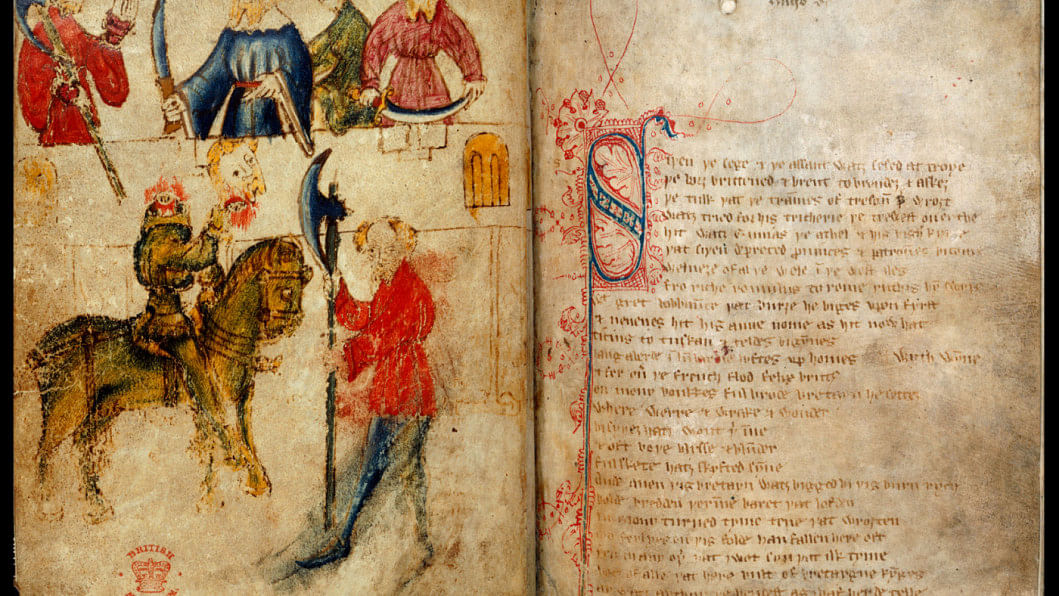 Hugo d.
Siþen þe sege & þe assaut watz sesed at troye
þe borȝ brittened & brent to brondez & askez
þe tulk þat þe trammes of tresoun þ wroȝt
watz tried for his tricherie þe trewest on erthe
hit watz ennias þe athel & his highe kynde
þat siþen depreced prouinces & patrounes bicome
welneȝe of al þe wele ī þe west iles
fro riche romulus to rome ricchis hȳ swyþe
gret bobbaūce þat burȝe he biges vpon fyrst
& neuenes hit his aune nome as hit now hat
ticius to tuskan & teldes bigȳnes
langaberde ī lūbardie lyftes vp homes with wȳne
& fer ou þe french flod felix brutus
on mony bonkkes ful brode bretayn he settez
where werre & wrake & wonder
bi syþez hatz wont þ īne
& oft boþe blysse & blūder
ful skete hatz skyfted sȳne
Ande quen þis bretayn watz bigged bi þis burn rych
bolde bredden þerīne baret þat lofden
in mony turned tyme tene þat wroȝten
mo ferlyes on þis folde han fallen here oft
þen in any oþ þat I wot syn þat ilk tyme
bot of alle þat here bult of bretaygne kȳges
ay watz arthur þe hendest as I haf herde telle
BRITISH